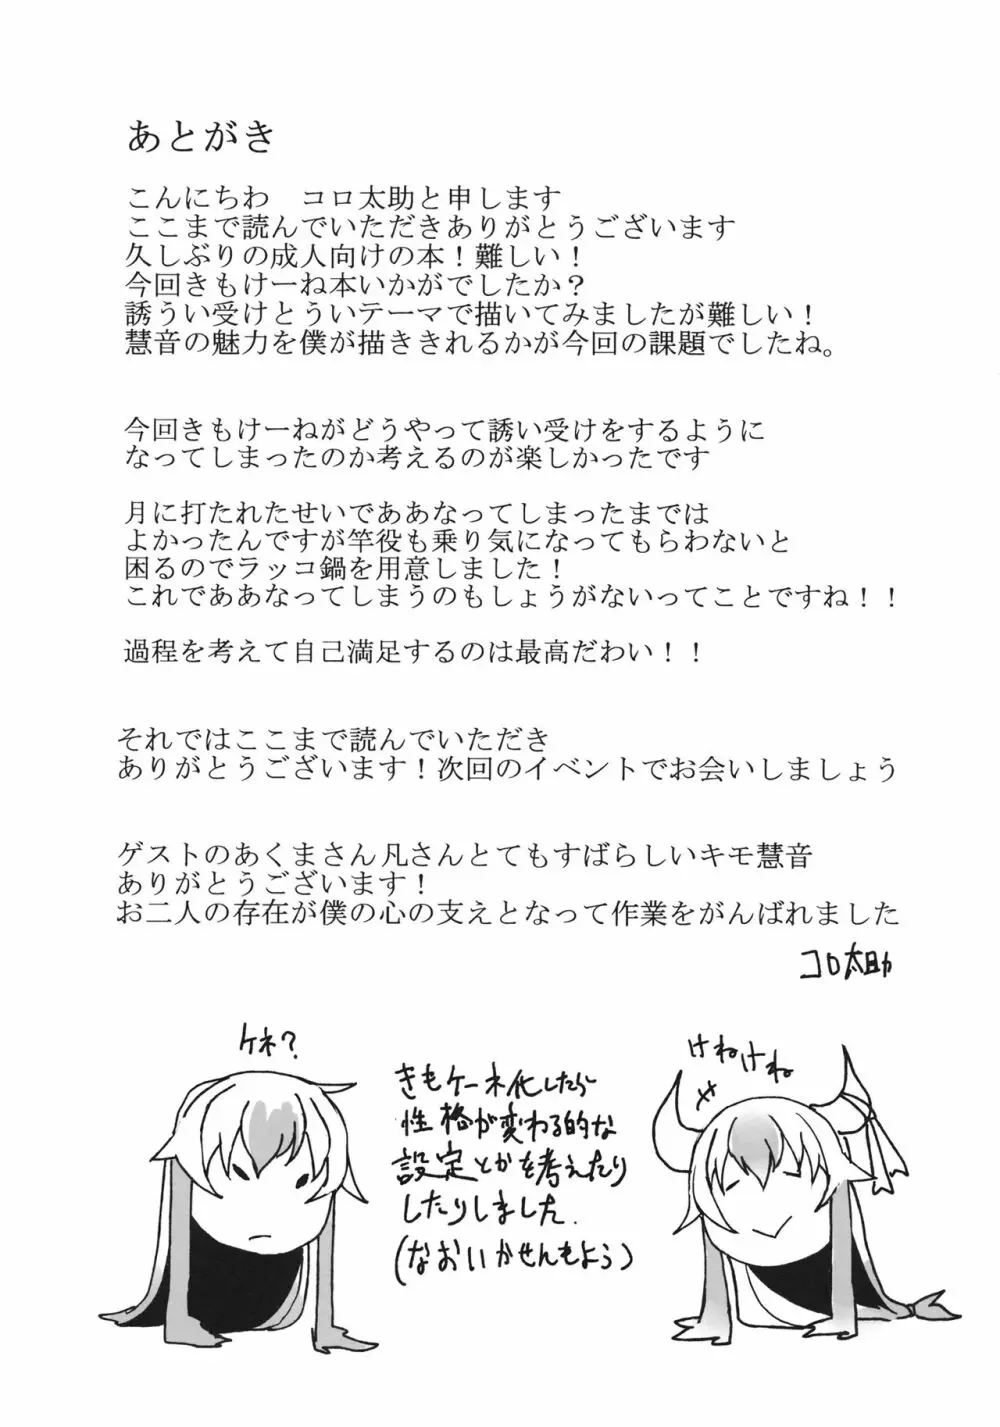 あとがき
こんにちわ　コロ太助と申します
ここまで読んでいただきありがとうございます
久しぶりの成人向けの本！難しい！
今回きもけーね本いかがでしたか？
誘うい受けとういテーマで描いてみましたが難しい！
慧音の魅力を僕が描ききれるかが今回の課題でしたね。
今回きもけーねがどうやって誘い受けをするように
なってしまったのか考えるのが楽しかったです
月に打たれたせいでああなってしまったまでは
よかったんですが竿役も乗り気になってもらわないと
困るのでラッコ鍋を用意しました！
これでああなってしまうのもしょうがないってことですね！！
過程を考えて自己満足するのは最高だわい！！
それではここまで読んでいただき
ありがとうございます！次回のイベントでお会いしましょう
ゲストのあくまさん凡さんとてもすばらしいキモ慧音
ありがとうございます！
お二人の存在が僕の心の支えとなって作業をがんばれました
コロ太助
ケネ？
きもケーネ化したら
性格が変わる的な
設定とかを考えたり
したりしました.
(なおいかせんもよう)
けねけね